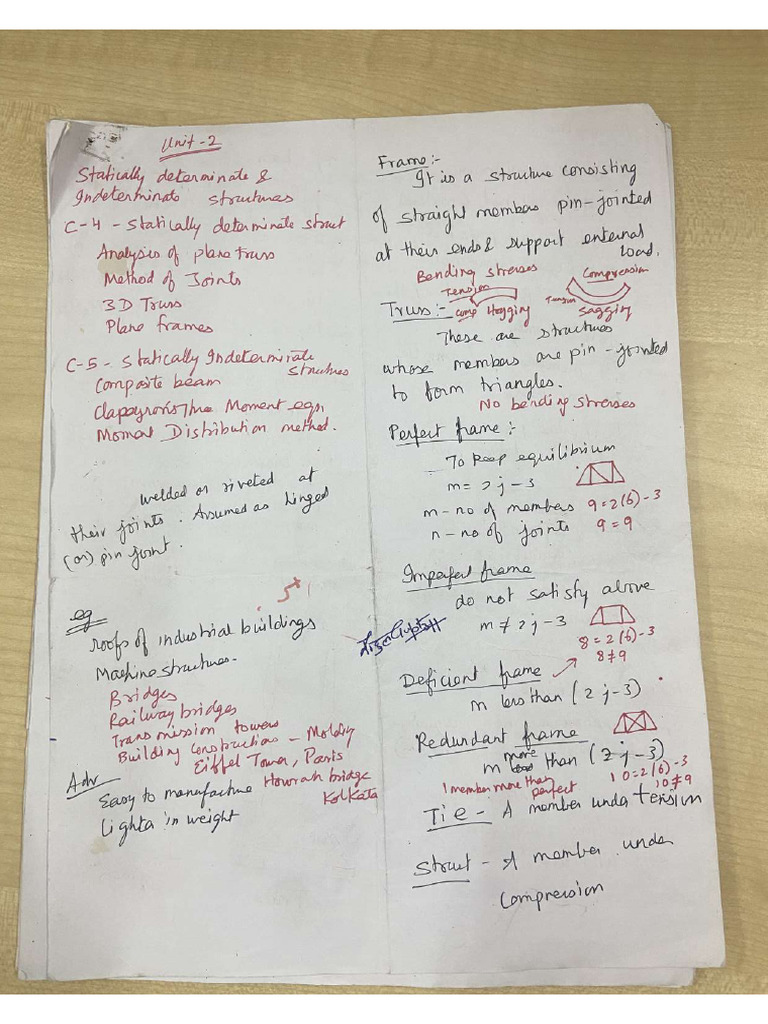 Unit-2
Statically determinate &
Indeterminate structures
C-4 - Statically determinate struct
Analysis of plane truss
Method of Joints
3D Truss
Plane frames
C-5 - Statically Indeterminate
structures
Composite beam
Moment eqn
Moment Distribution method.
welded or riveted at
their joints. Assumed as hinged
(or) pin joint.
eg
roofs of industrial buildings
Machine structures.
Bridges
Railway bridges
Transmission towers
Building Construction -
Eiffel Tower, Paris
Adv
Easy to manufacture Howrah bridge
Kolkata
in weight
Frame:-
It is a structure consisting
of straight members pin-jointed
at their ends & support external
load.
Bending stresses
Tension
Compression
Truss:- comp Hogging
Tension
Sagging
These are structures
whose members are pin-jointed
to form triangles.
No bending stresses
Perfect frame:-
To keep equilibrium
m = 2j-3
m - no of members 9=2(6)-3
n - no of joints 9=9
Imperfect frame
do not satisfy above
m ≠ 2j-3
8=2(6)-3
8≠9
Deficient frame
m less than (2j-3)
Redundant frame
m more than (2j-3)
1 member more than perfect
10=2(6)-3
10≠9
Tie - A member under tension
Strut - A member under
compression